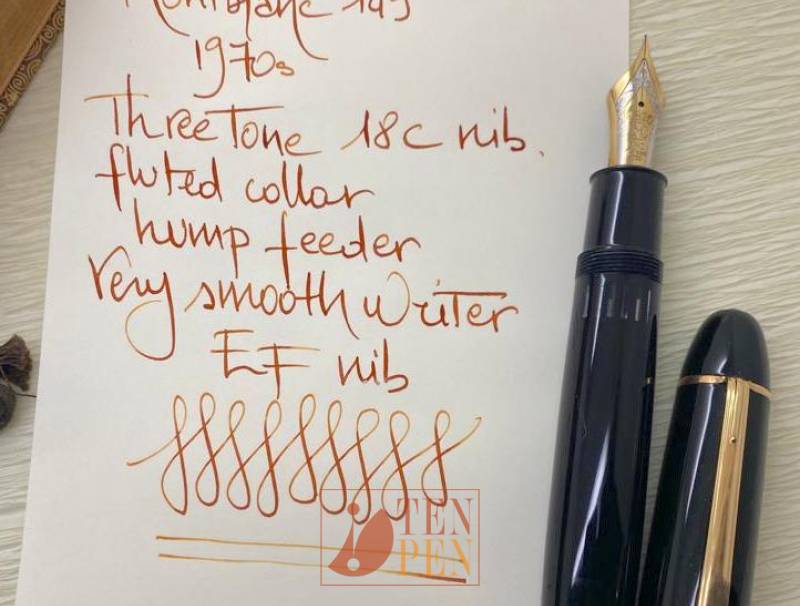 Montblanc 149
1970s
Three Tone 18C nib.
fluted collar
hump feeder
Very smooth writer
EF nib
TEN
PEN